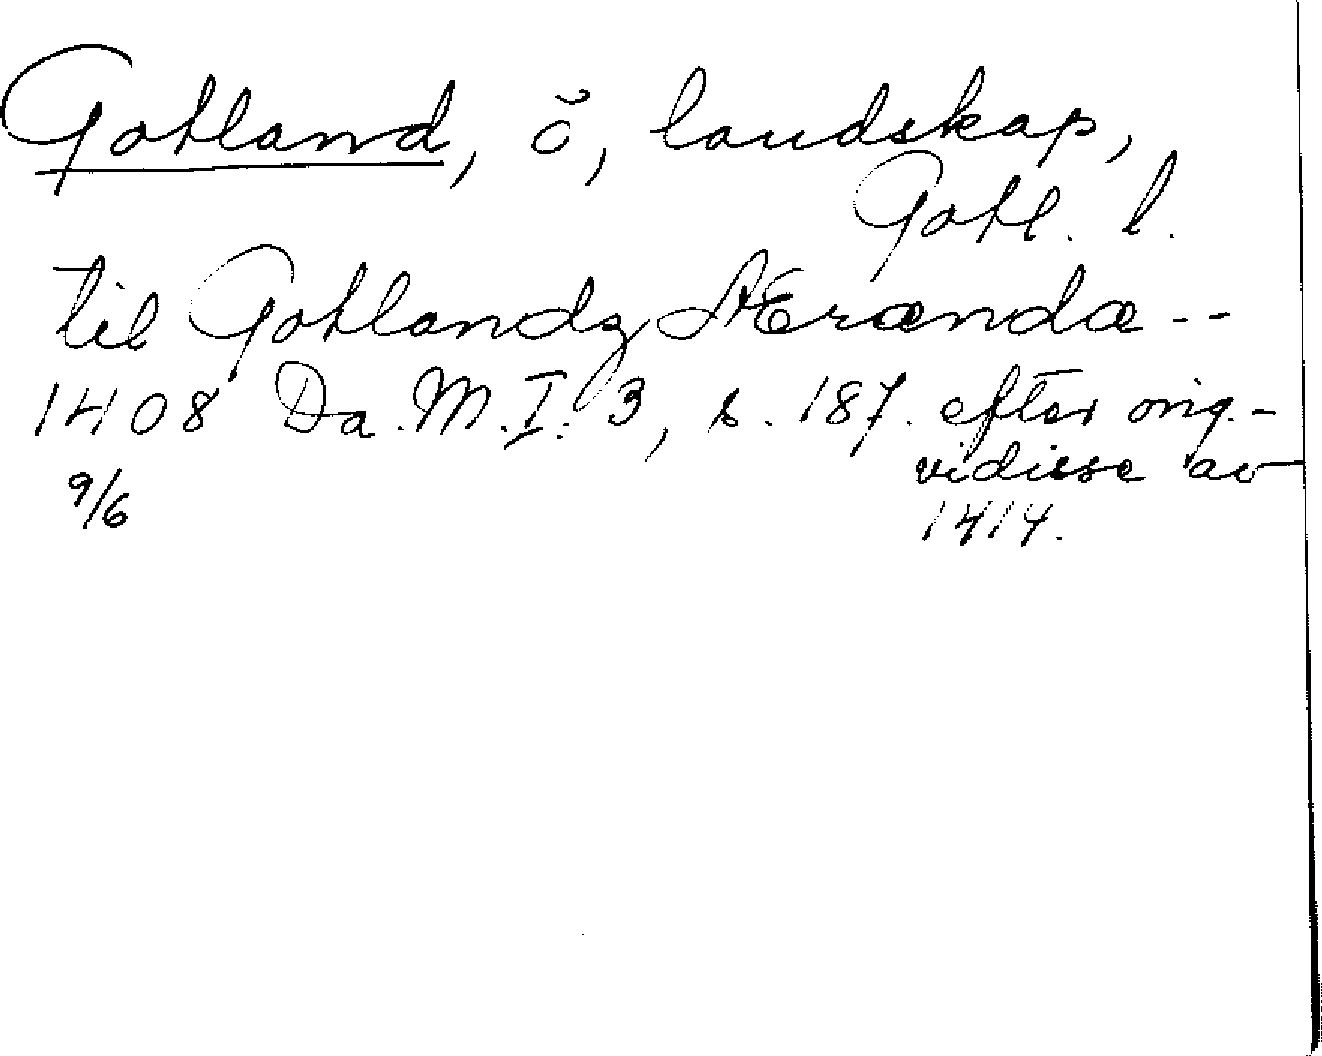 Gotland, ö, landskap,
Gotl. l.
til Gotlandz Ærænda --
1408 Da. M. I: 3, s. 187. efter orig.-
9/6 vidisse av
1414.